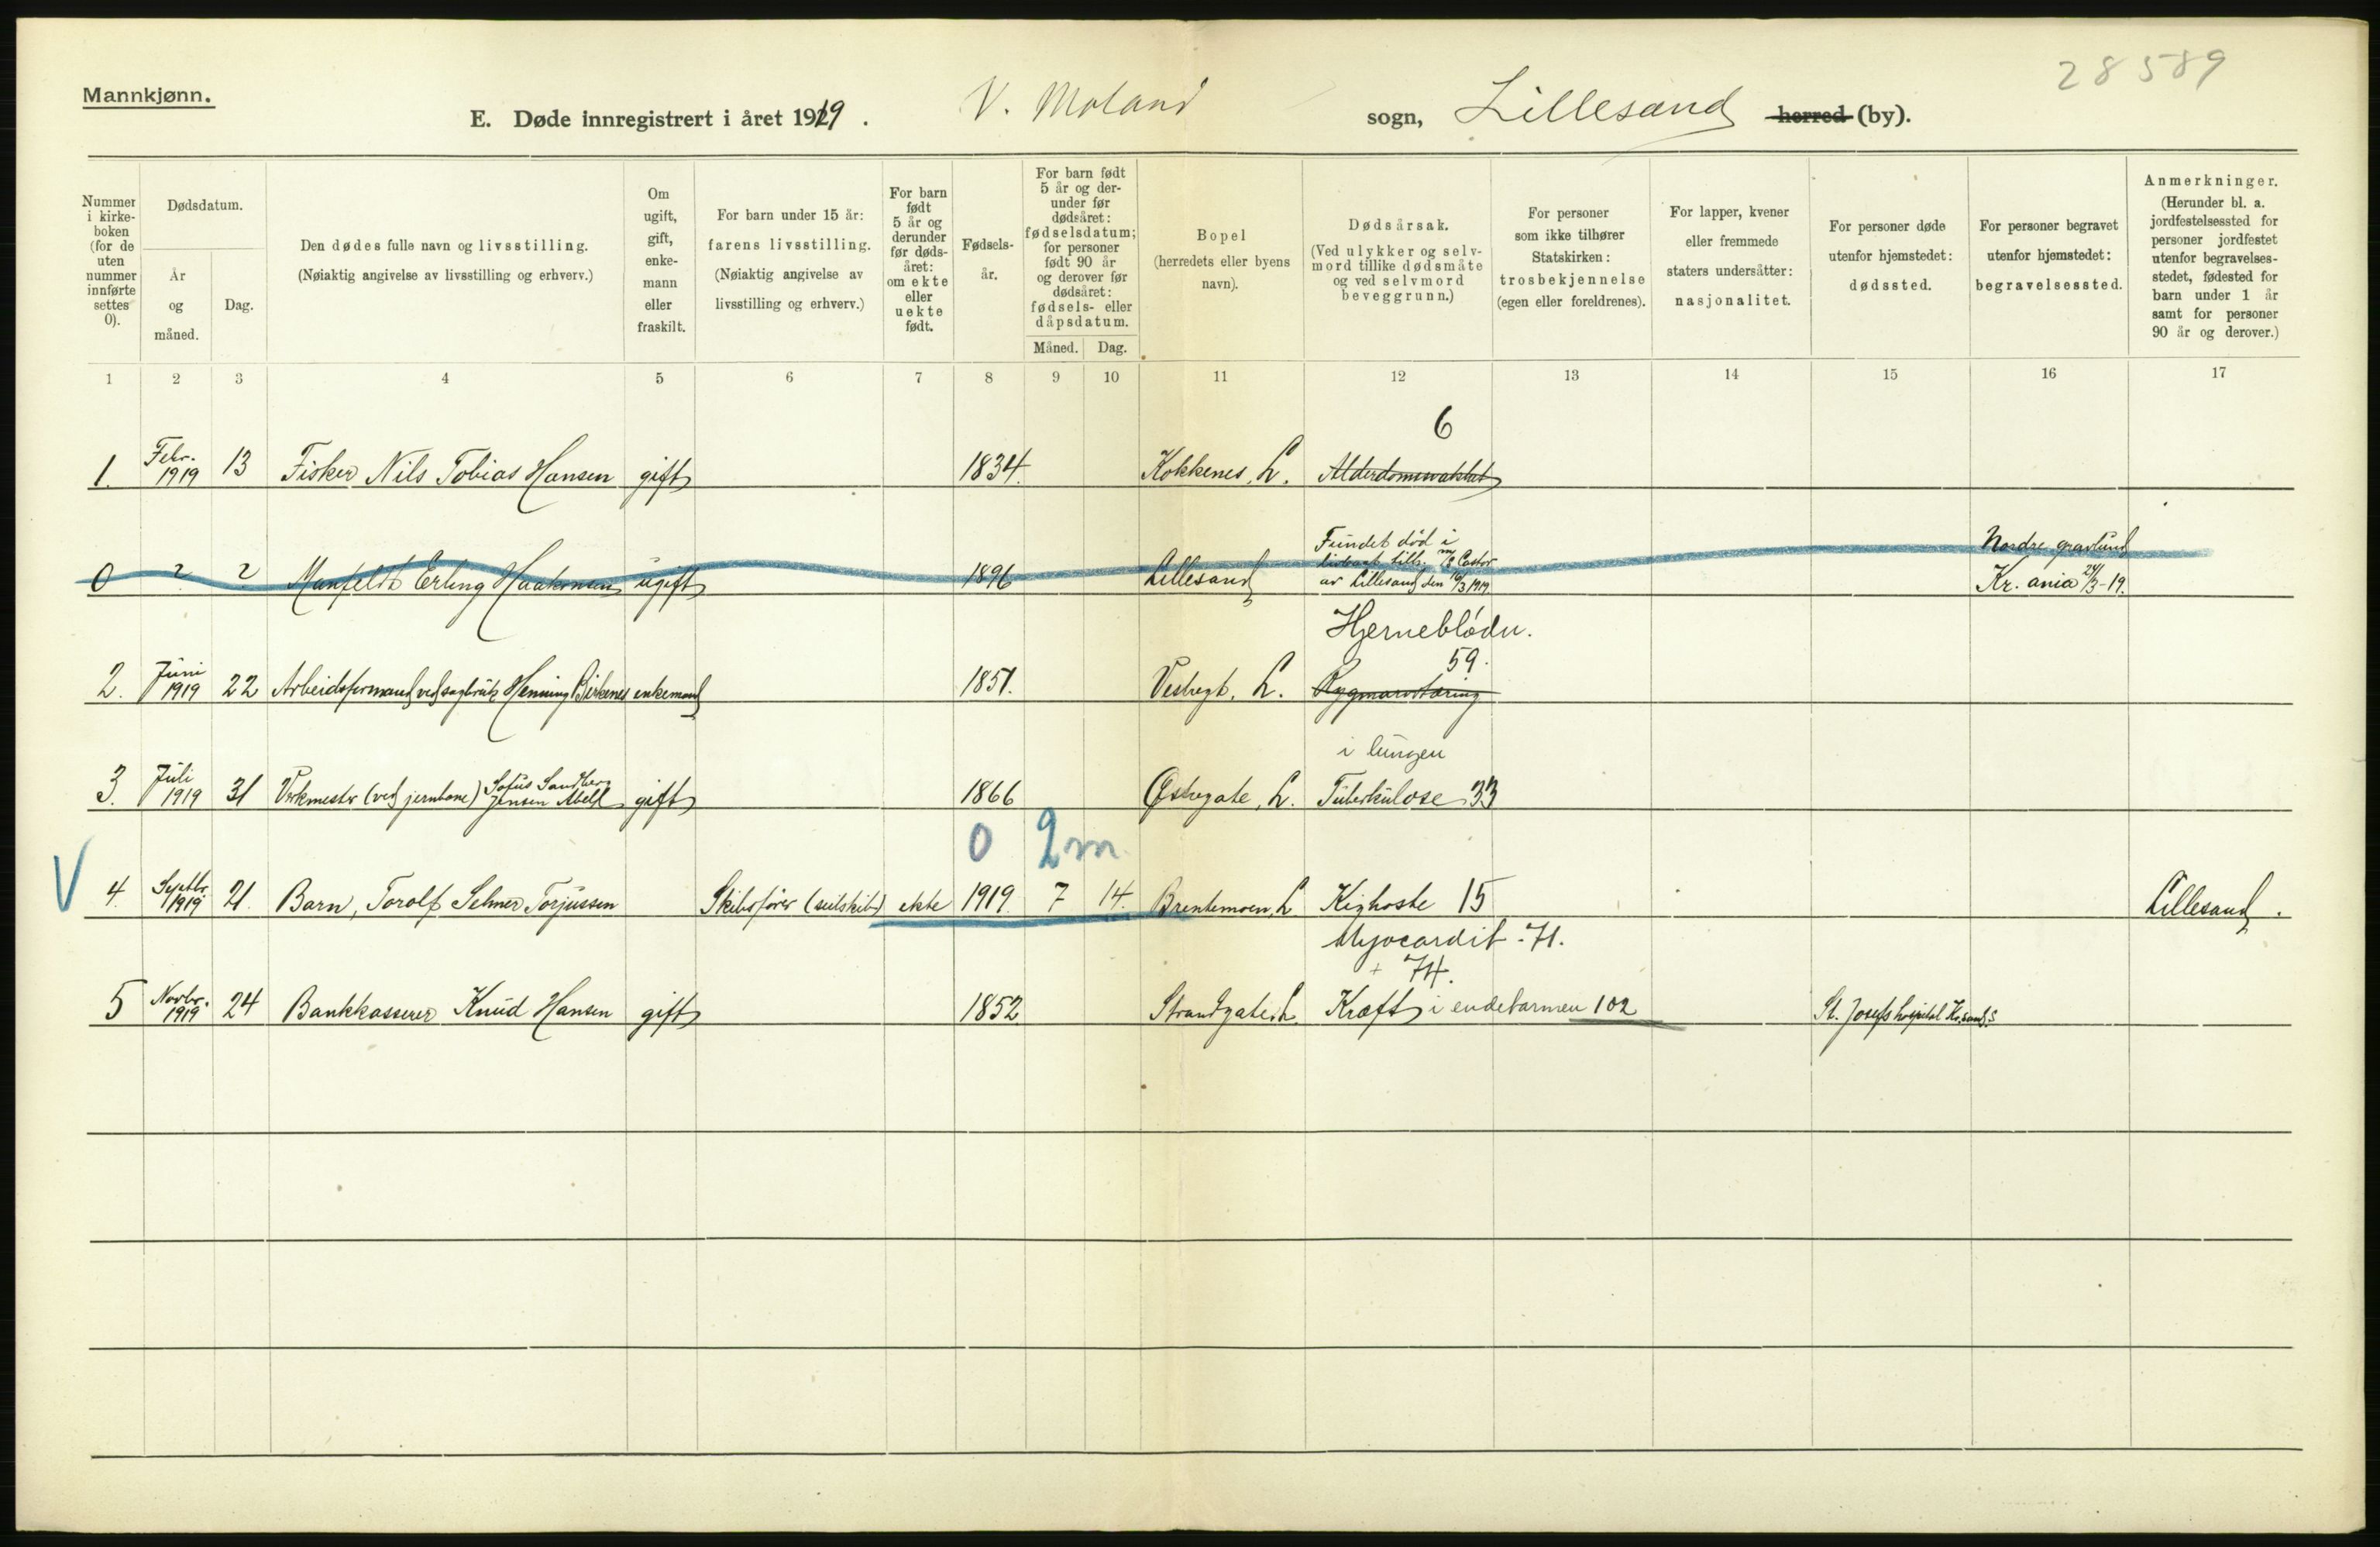 Mannkjønn.
28589
E. Døde innregistrert i året 1919. V. Moland sogn, Lillesand herred (by).
Nummer i kirke-boken (for de uten nummer innførte settes 0).
Dødsdatum.
År og måned.
Dag.
Den dødes fulle navn og livsstilling.
(Nøiaktig angivelse av livsstilling og erhverv.)
Om ugift, gift, enke-mann eller fraskilt.
For barn under 15 år:
farens livsstilling.
(Nøiaktig angivelse av livsstilling og erhverv.)
For barn født 5 år og derunder før døds-året: om ekte eller uekte født.
Fødsels-år.
For barn født 5 år og der-under før dødsåret: fødselsdatum; for personer født 90 år og derover før dødsåret: fødsels- eller dåpsdatum.
Måned. Dag.
Bopel
(herredets eller byens navn).
Dødsårsak.
(Ved ulykker og selv-mord tillike dødsmåte og ved selvmord beveggrunn.)
For personer som ikke tilhører Statskirken: trosbekjennelse (egen eller foreldrenes).
For lapper, kvener eller fremmede staters undersåtter: nasjonalitet.
For personer døde utenfor hjemstedet: dødssted.
For personer begravet utenfor hjemstedet: begravelsessted.
Anmerkninger.
(Herunder bl. a. jordfestelsessted for personer jordfestet utenfor begravelses-stedet, fødested for barn under 1 år samt for personer 90 år og derover.)
1 2 3 4 5 6 7 8 9 10 11 12 13 14 15 16 17
6
1. Febr. 1919 13 Fisker Nils Tobias Hansen gift 1834. Kokkenes, L. Alderdomssvakhet
0 ? ? Manfeldt Erling Haakonsen ugift 1896 Lillesand Fundet død i
av Lillesand den 16/3 1919. Nordre gravlund Kr.ania 24/3-19.
Hjerneblødn.
59.
2. Juni 1919 22 Arbeidsformand ved sagbruk Henning Birkenes enkemand 1851. Vestregt, L. Rygmarvstæring
i lungen
3. Juli 1919 31 Verkmester (ved jernbane) Sofus Sandberg Jensen Abell gift 1866 Østregate, L. Tuberkulose 33
0 2m
V 4. Septbr. 1919 21. Barn, Torolf Selmer Torjussen Skibsfører (seilskib) ekte 1919. 7 14. Brentemoen, L Kighoste 15 Lillesand.
Myocardit - 71.
+ 74.
5 Novbr. 1919 24 Bankkasserer Knud Hansen gift 1852. Strandgate, L. Kræft i endetarmen 102 St. Josefs hospital Kr.sand.S